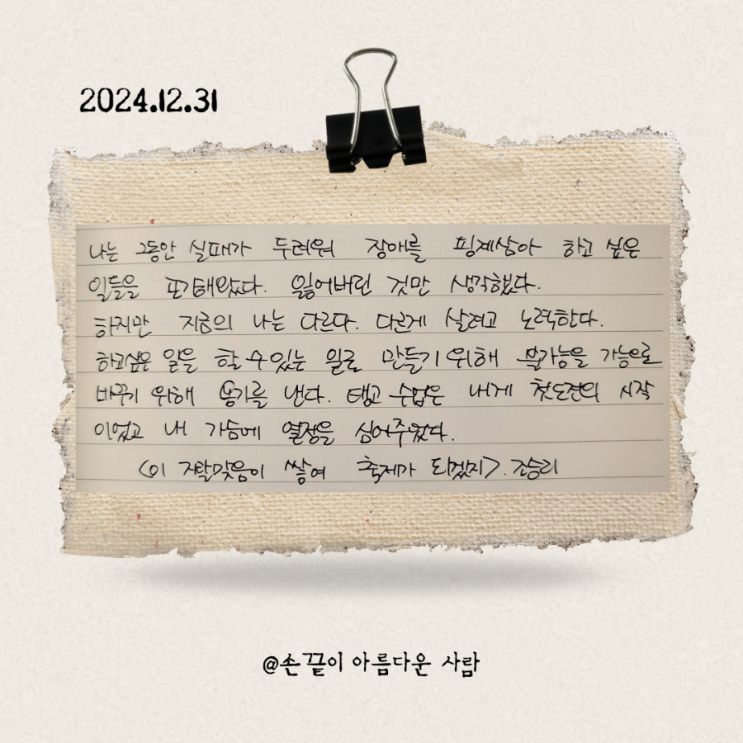 2024.12.31
나는 그동안 실패가 두려워 장애를 핑계삼아 하고 싶은
일들을 포기해왔다. 잃어버린 것만 생각했다.
하지만 지금의 나는 다르다. 다르게 살려고 노력한다.
하고싶은 일을 할 수 있는 일로 만들기 위해 불가능을 가능으로
바꾸기 위해 용기를 낸다. 탱고 수업은 내게 첫 도전의 시작
이었고 내 가슴에 열정을 심어주었다.
<이 지랄맞음이 쌓여 축제가 되겠지>. 조승리
@손끝이 아름다운 사람